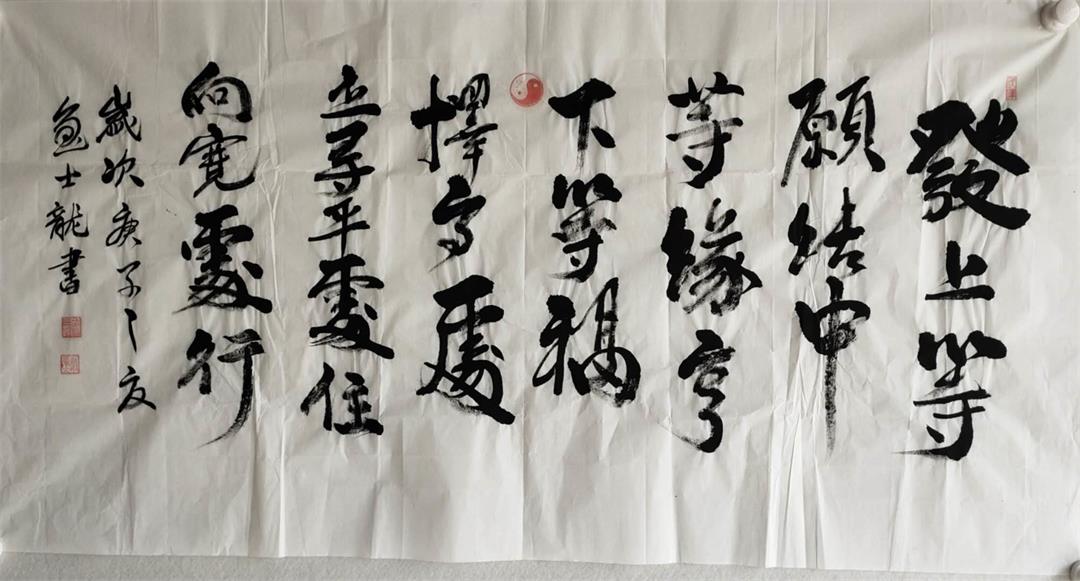 發上等
願結中
等緣享
下等福
擇高處
立尋平處住
向寬處行
歲次庚子之夏
士龍書